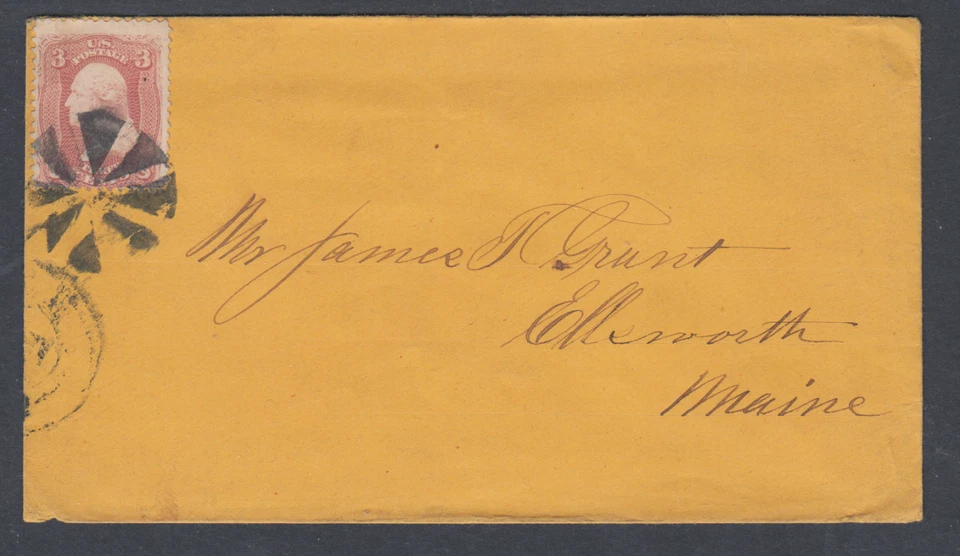 U.S.
POSTAGE
3 3
Mr James T Grant
Ellsworth
Maine